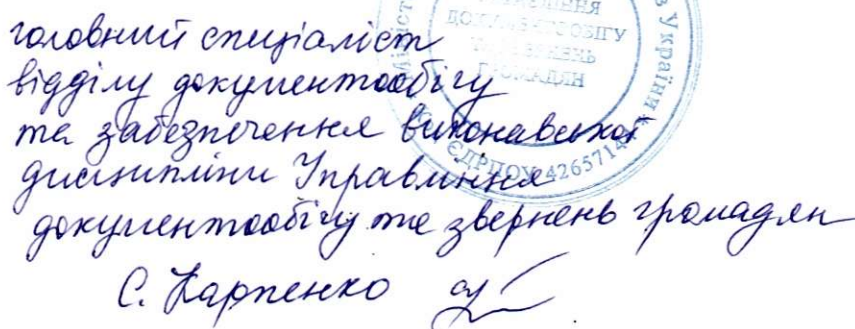 головний спеціаліст
відділу документообігу
та забезпечення виконавської
дисципліни Управління
документообігу та звернень громадян
С. Карпенко
ДОКУМЕНТООБІГУ
ГРОМАДЯН
України
ЄДРПОУ 426571